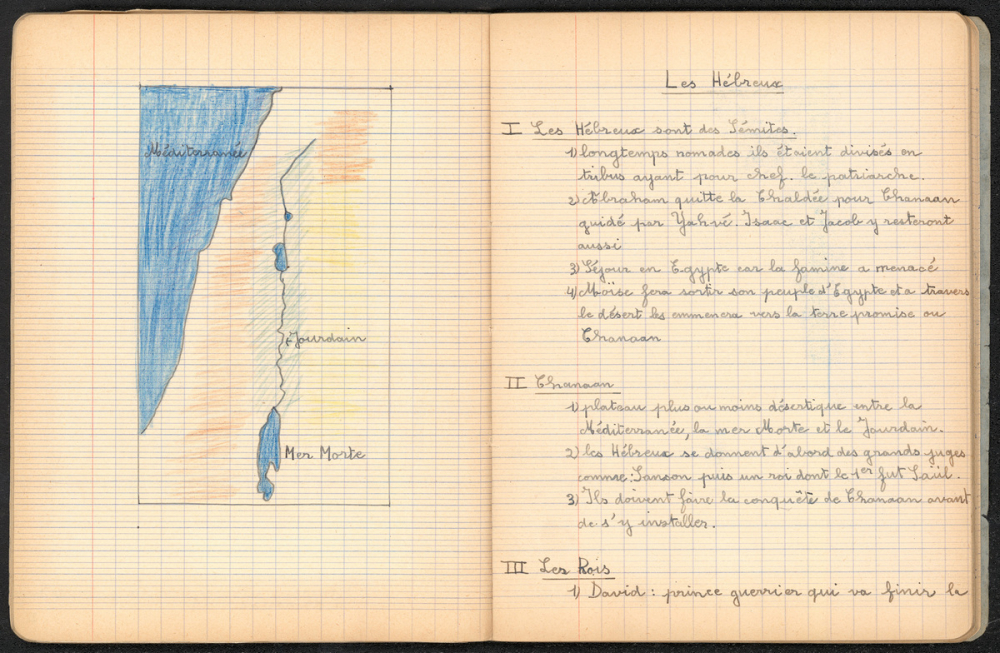 Méditerranée
Jourdain
Mer Morte
Les Hébreux
I Les Hébreux sont des Sémites.
1) longtemps nomades ils étaient divisés en
tribus ayant pour chef. le patriarche.
2) Abraham quitte la Chaldée pour Chanaan
guidé par Yahvé. Isaac et Jacob y resteront
aussi
3) Séjour en Egypte car la famine a menacé
4) Moïse fera sortir son peuple d'Egypte et a travers
le désert les emmenera vers la terre promise ou
Chanaan
II Chanaan
1) plateau plus ou moins désertique entre la
Méditerranée, la mer Morte et le Jourdain.
2) les Hébreux se donnent d'abord des grands juges
comme: Sanson puis un roi dont le 1er fut Saül.
3) Ils doivent faire la conquête de Chanaan avant
de s'y installer.
III Les Rois
1) David : prince guerrier qui va finir la